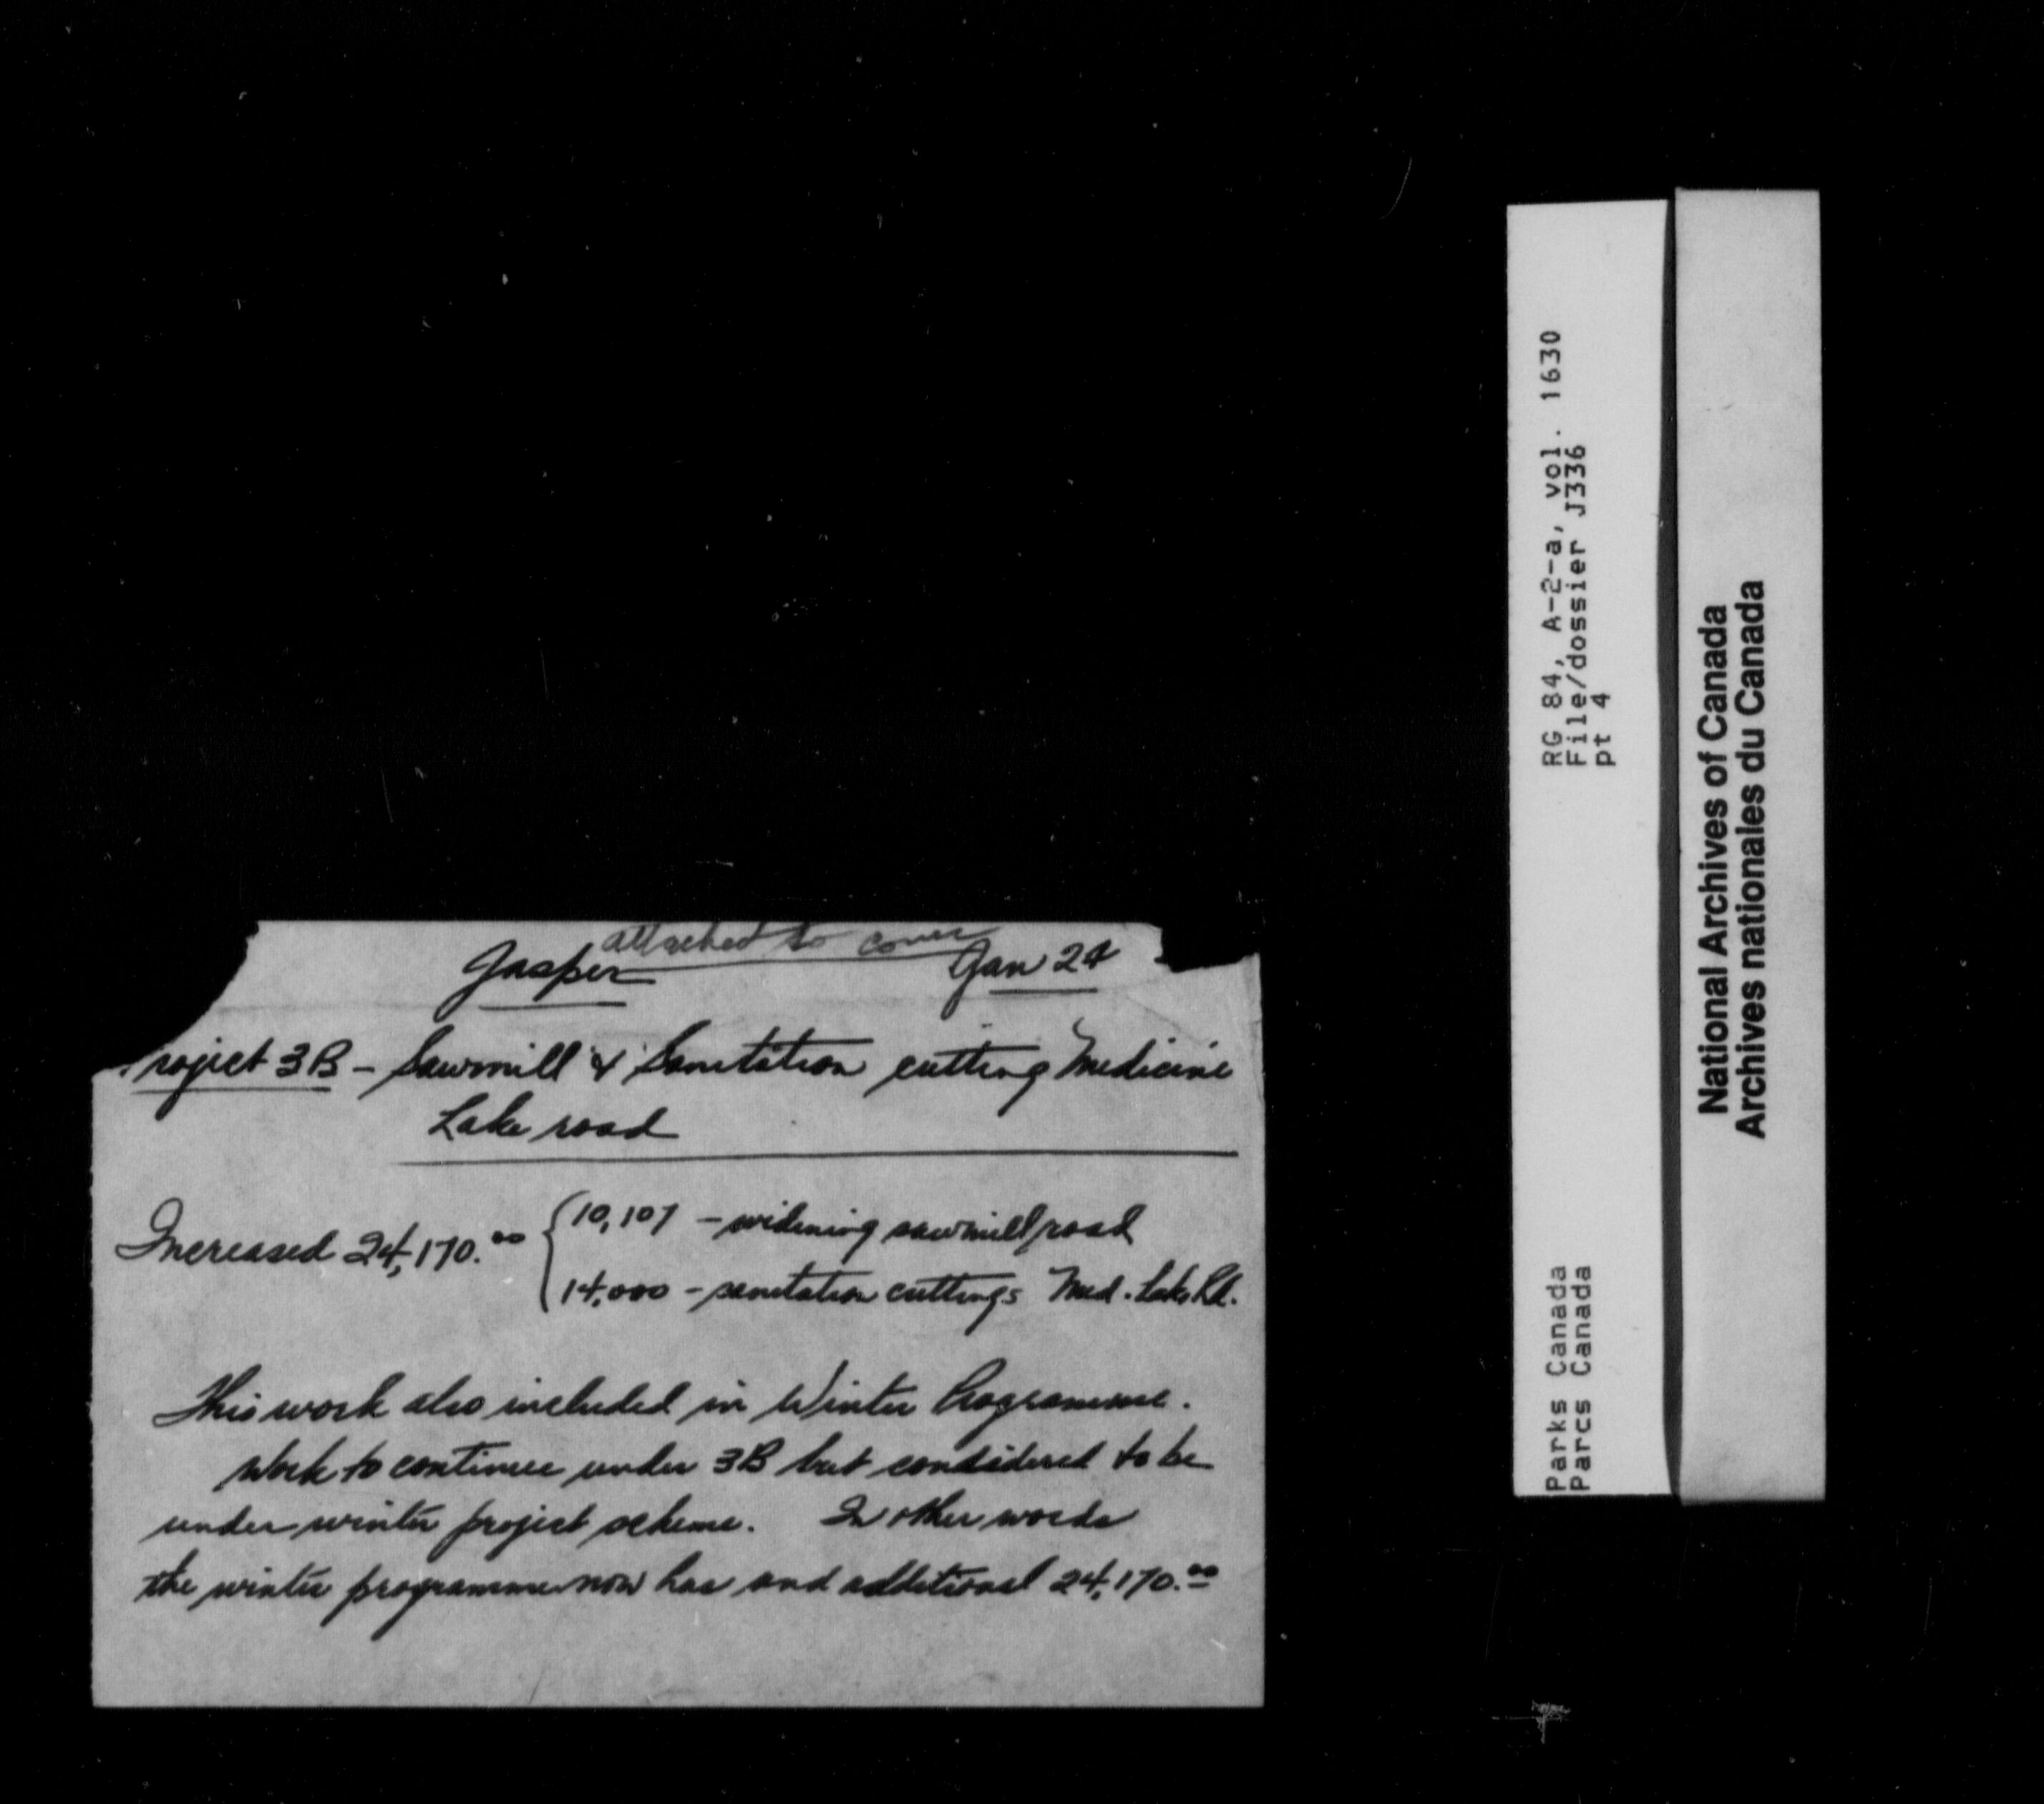 attached to cover
Jasper Jan 24
roject 3B - Sawmill & Sanitation cutting Medicine
Lake road
Increased 24,170.00 { 10,107 - widening sawmill road
14,000 - sanitation cuttings Med. Lake Rd.
This work also included in Winter Programme.
Work to continue under 3B but considered to be
under winter project scheme. In other words
the winter programme now has and additional 24,170.00
RG 84, A-2-a, vol. 1630
File/dossier J336
pt 4
Parks Canada
Parcs Canada
National Archives of Canada
Archives nationales du Canada